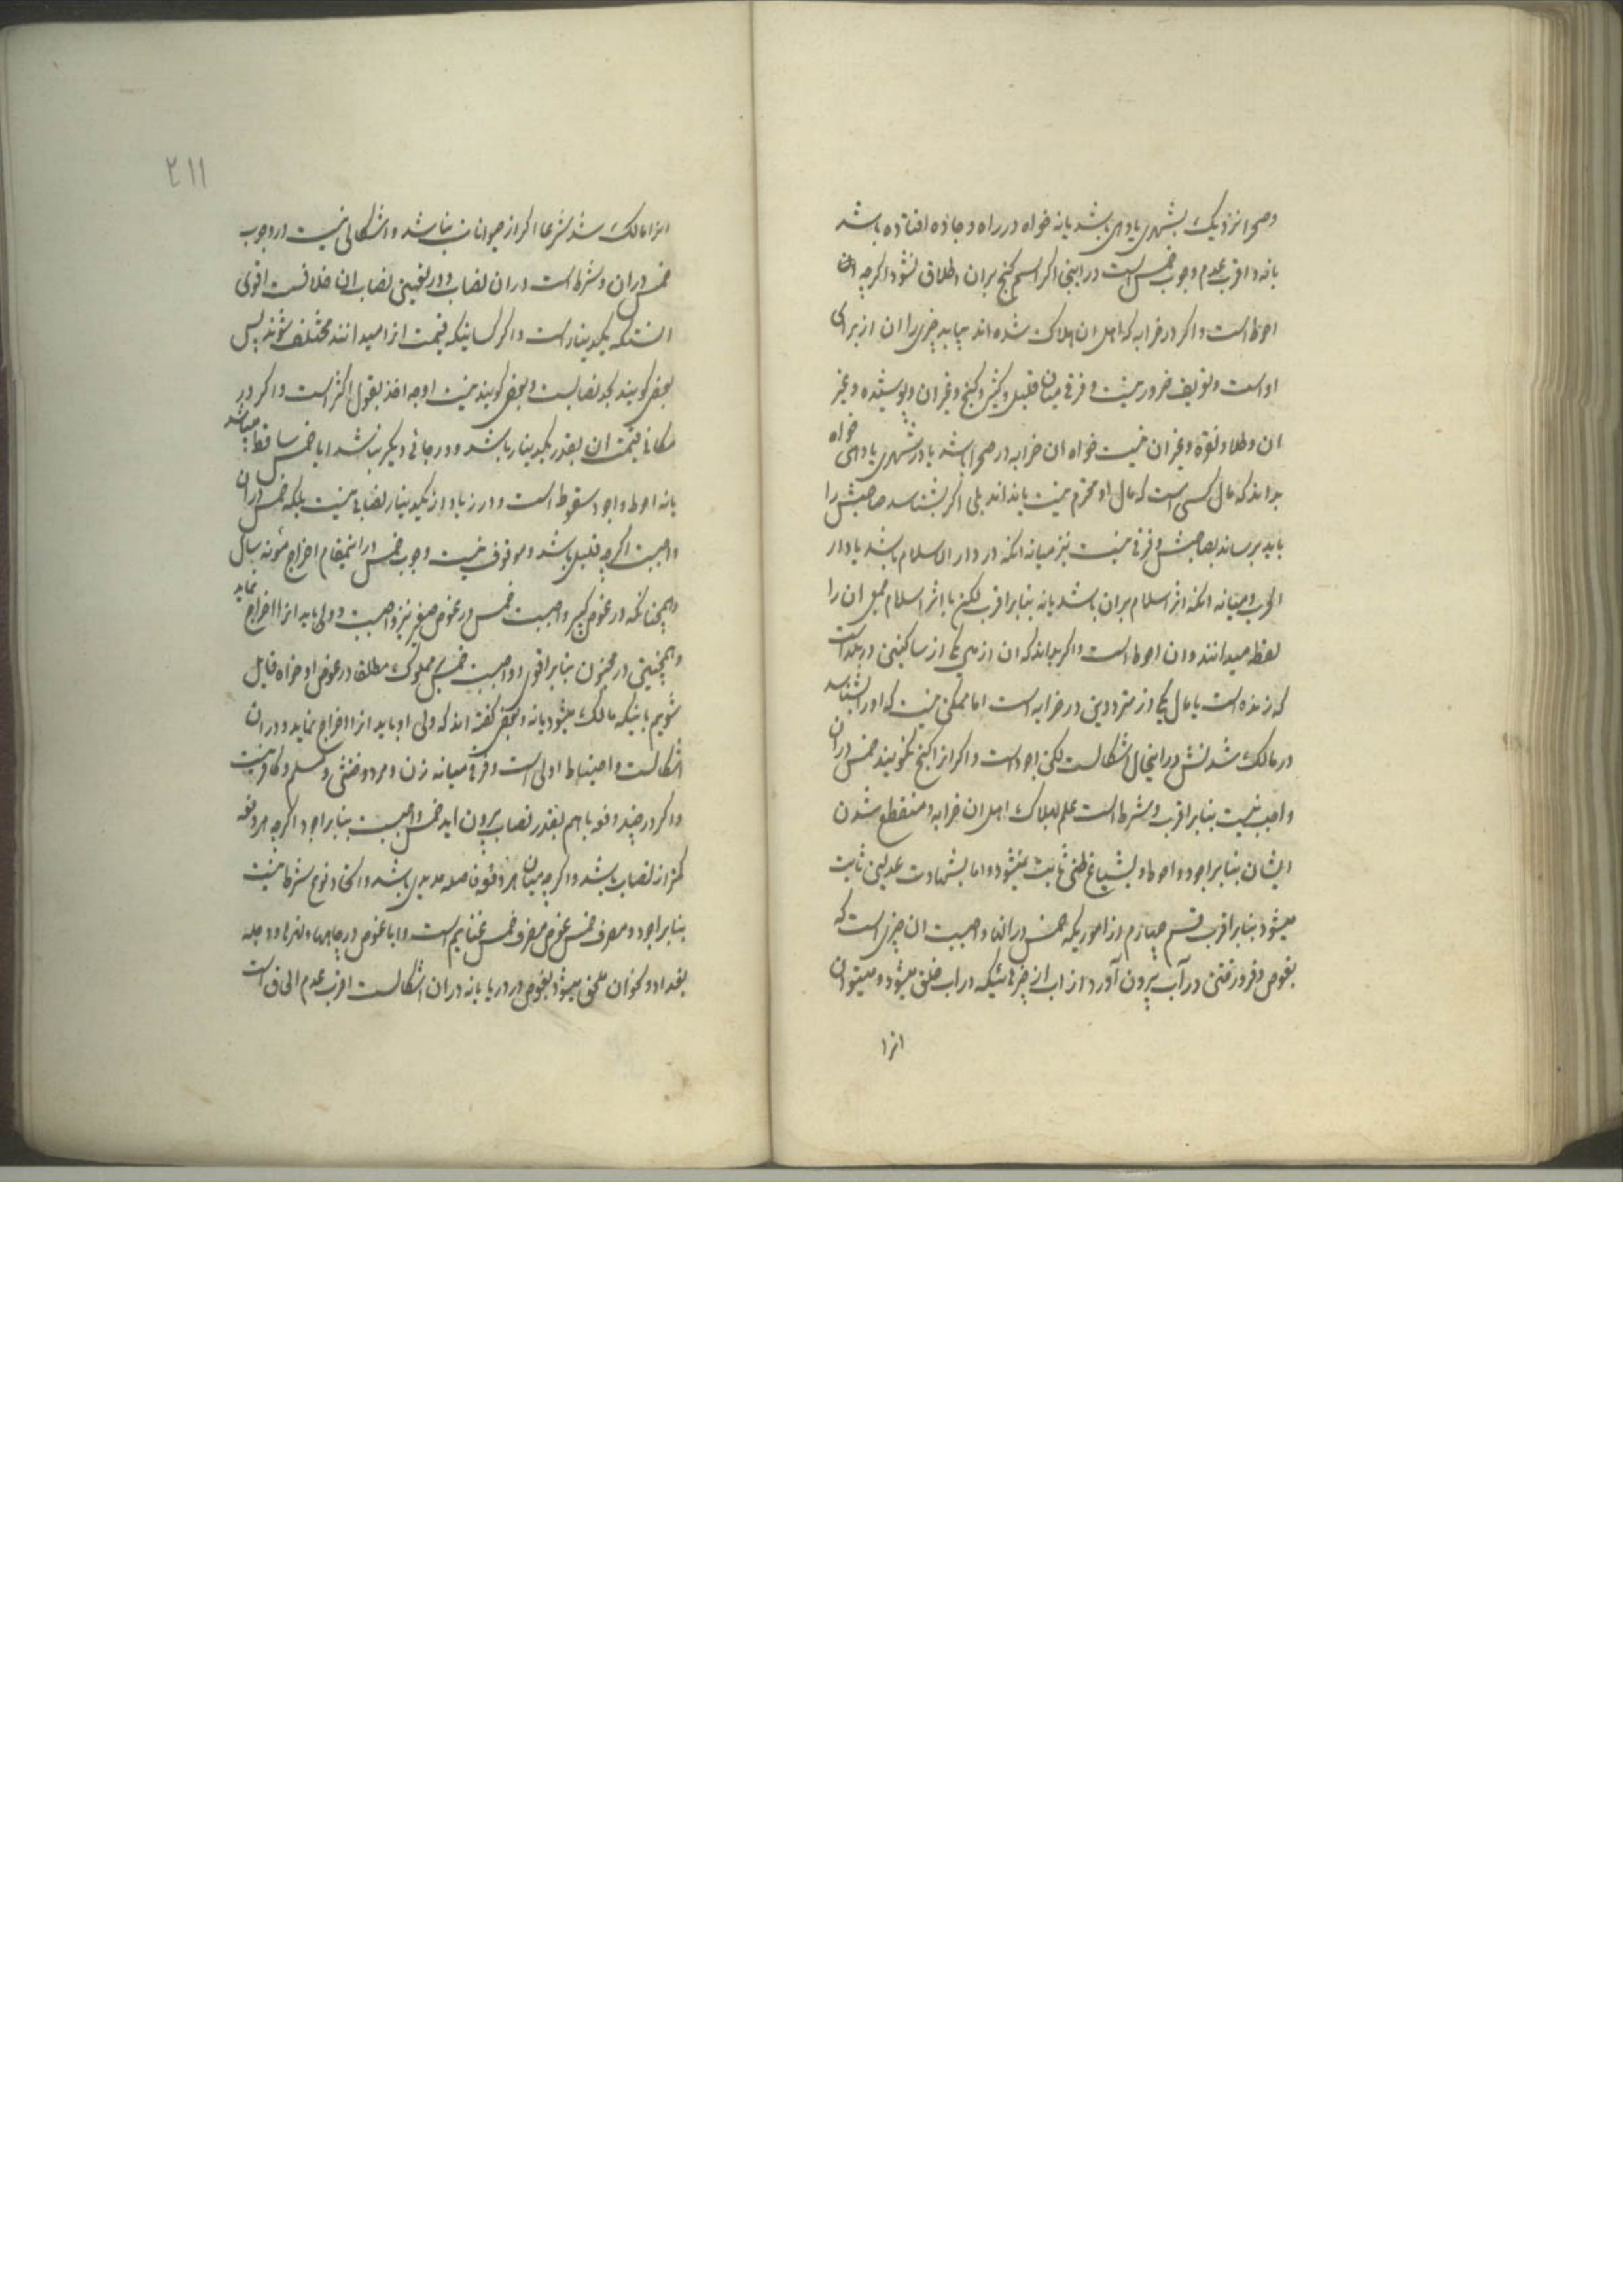 وصحرا نزدیک بشهری یا دهی باشد یا نه خواه در راه و جاده افتاده باشد
یا نه و اقرب عدم وجوب خمس است در اینجا اگر اسم کنج بران اطلاق نشود اکرچه ان
احوط است و اکر در خرابه که اهل ان هلاک شده اند بیابد چیزی را ان از برای
اوست و تعریف ضرور نیست و فرقی میان قلیل و کثیر و کنج و غیر ان و پوشیده و غیر
ان و طلا و نقره و غیر ان نیست خواه ان خرابه در صحرا باشد یا در شهری یا دهی خواه
بداند که مال کسی است که مال او محترم نیست یا نداند بلی اگر بشناسد صاحبش را
باید برساند بصاحبش و فرقی نیست نیز میانه انکه در دار الاسلام باشد یا دار
الحرب و میانه انکه اثر اسلام بران باشد یا نه بنابر اقرب لکن با اثر اسلام جمعی ان را
لقطه میدانند و ان احوط است و اکر بداند که ان از یکی از ساکنین در بلد است
که زنده است یا مال یکی از مترددین در خرابه است اما ممکن نیست که او را بشناسد
در مالک شدنش در اینحال اشکالست لکن اجود است و اکر انرا کنج نکویند خمس در ان
واجب نیست بنابر اقرب و شرط است علم بهلاک اهل ان خرابه و منقطع شدن
ایشان بنابر اجود و احوط و بشیاع ظنی ثابت نمیشود و اما بشهادت عدلین ثابت
میشود بنابر اقرب قسم چهارم از اموریکه خمس در انها واجبست ان چیزی است که
بغوص و فرو رفتن در آب بیرون آورد از اب از چیزهائیکه در اب خلق میشود و میتوان
انرا
۲۱۱
انرا مالک شد شرعا اکر از حیوانات نباشد و اشکالی نیست در وجوب
خمس در ان و شرط است در ان نصاب و در تعیین نصاب ان خلافست اقوی
انستکه یکدینار است و اکر کسانیکه قیمت انرا میدانند مختلف شوند پس
بعضی کویند بحد نصابست و بعضی کویند نیست اوجه اخذ بقول اکثر است و اکر در
مکانی قیمت ان بقدر یکدینار باشد و در جائی دیکر نباشد ایا خمس ساقط میباشد
یا نه احوط و اجود سقوط است و در زیاد از یکدینار نصابی نیست بلکه خمس در ان
واجبست اکرچه قلیل باشد و موقوف نیست وجوب خمس در اینمقام اخراج مئونه سال
و همچنانکه در غوص کبیر واجبست خمس در غوص صغیر نیز واجبست و ولی باید انرا اخراج نماید
و همچنین در مجنون بنابر اقوی و واجبست خمس بر مملوک مطلقا در غوص او خواه قایل
شویم باینکه مالک میشود یا نه و بعضی کفته اند که ولی او باید انرا اخراج نماید و در ان
اشکالست و احتیاط اولی است و فرقی میانه زن و مرد و خنثی و مسلم و کافر نیست
و اکر در چند دفعه با هم بقدر نصاب بیرون اید خمس واجبست بنابر اجود اکرچه هر دفعه
کمتر از نصاب باشد و اکرچه میان هر دفعه فاصله مدیدی باشد و اتحاد نوع شرط نیست
بنابر اجود و مصرف خمس غوص مصرف خمس غنایم است و ایا غوص در چاهها و نهرها و دجله
بغداد و نحو ان ملحق میشود بغوص در دریا یا نه در ان اشکالست اقرب عدم الحاق است